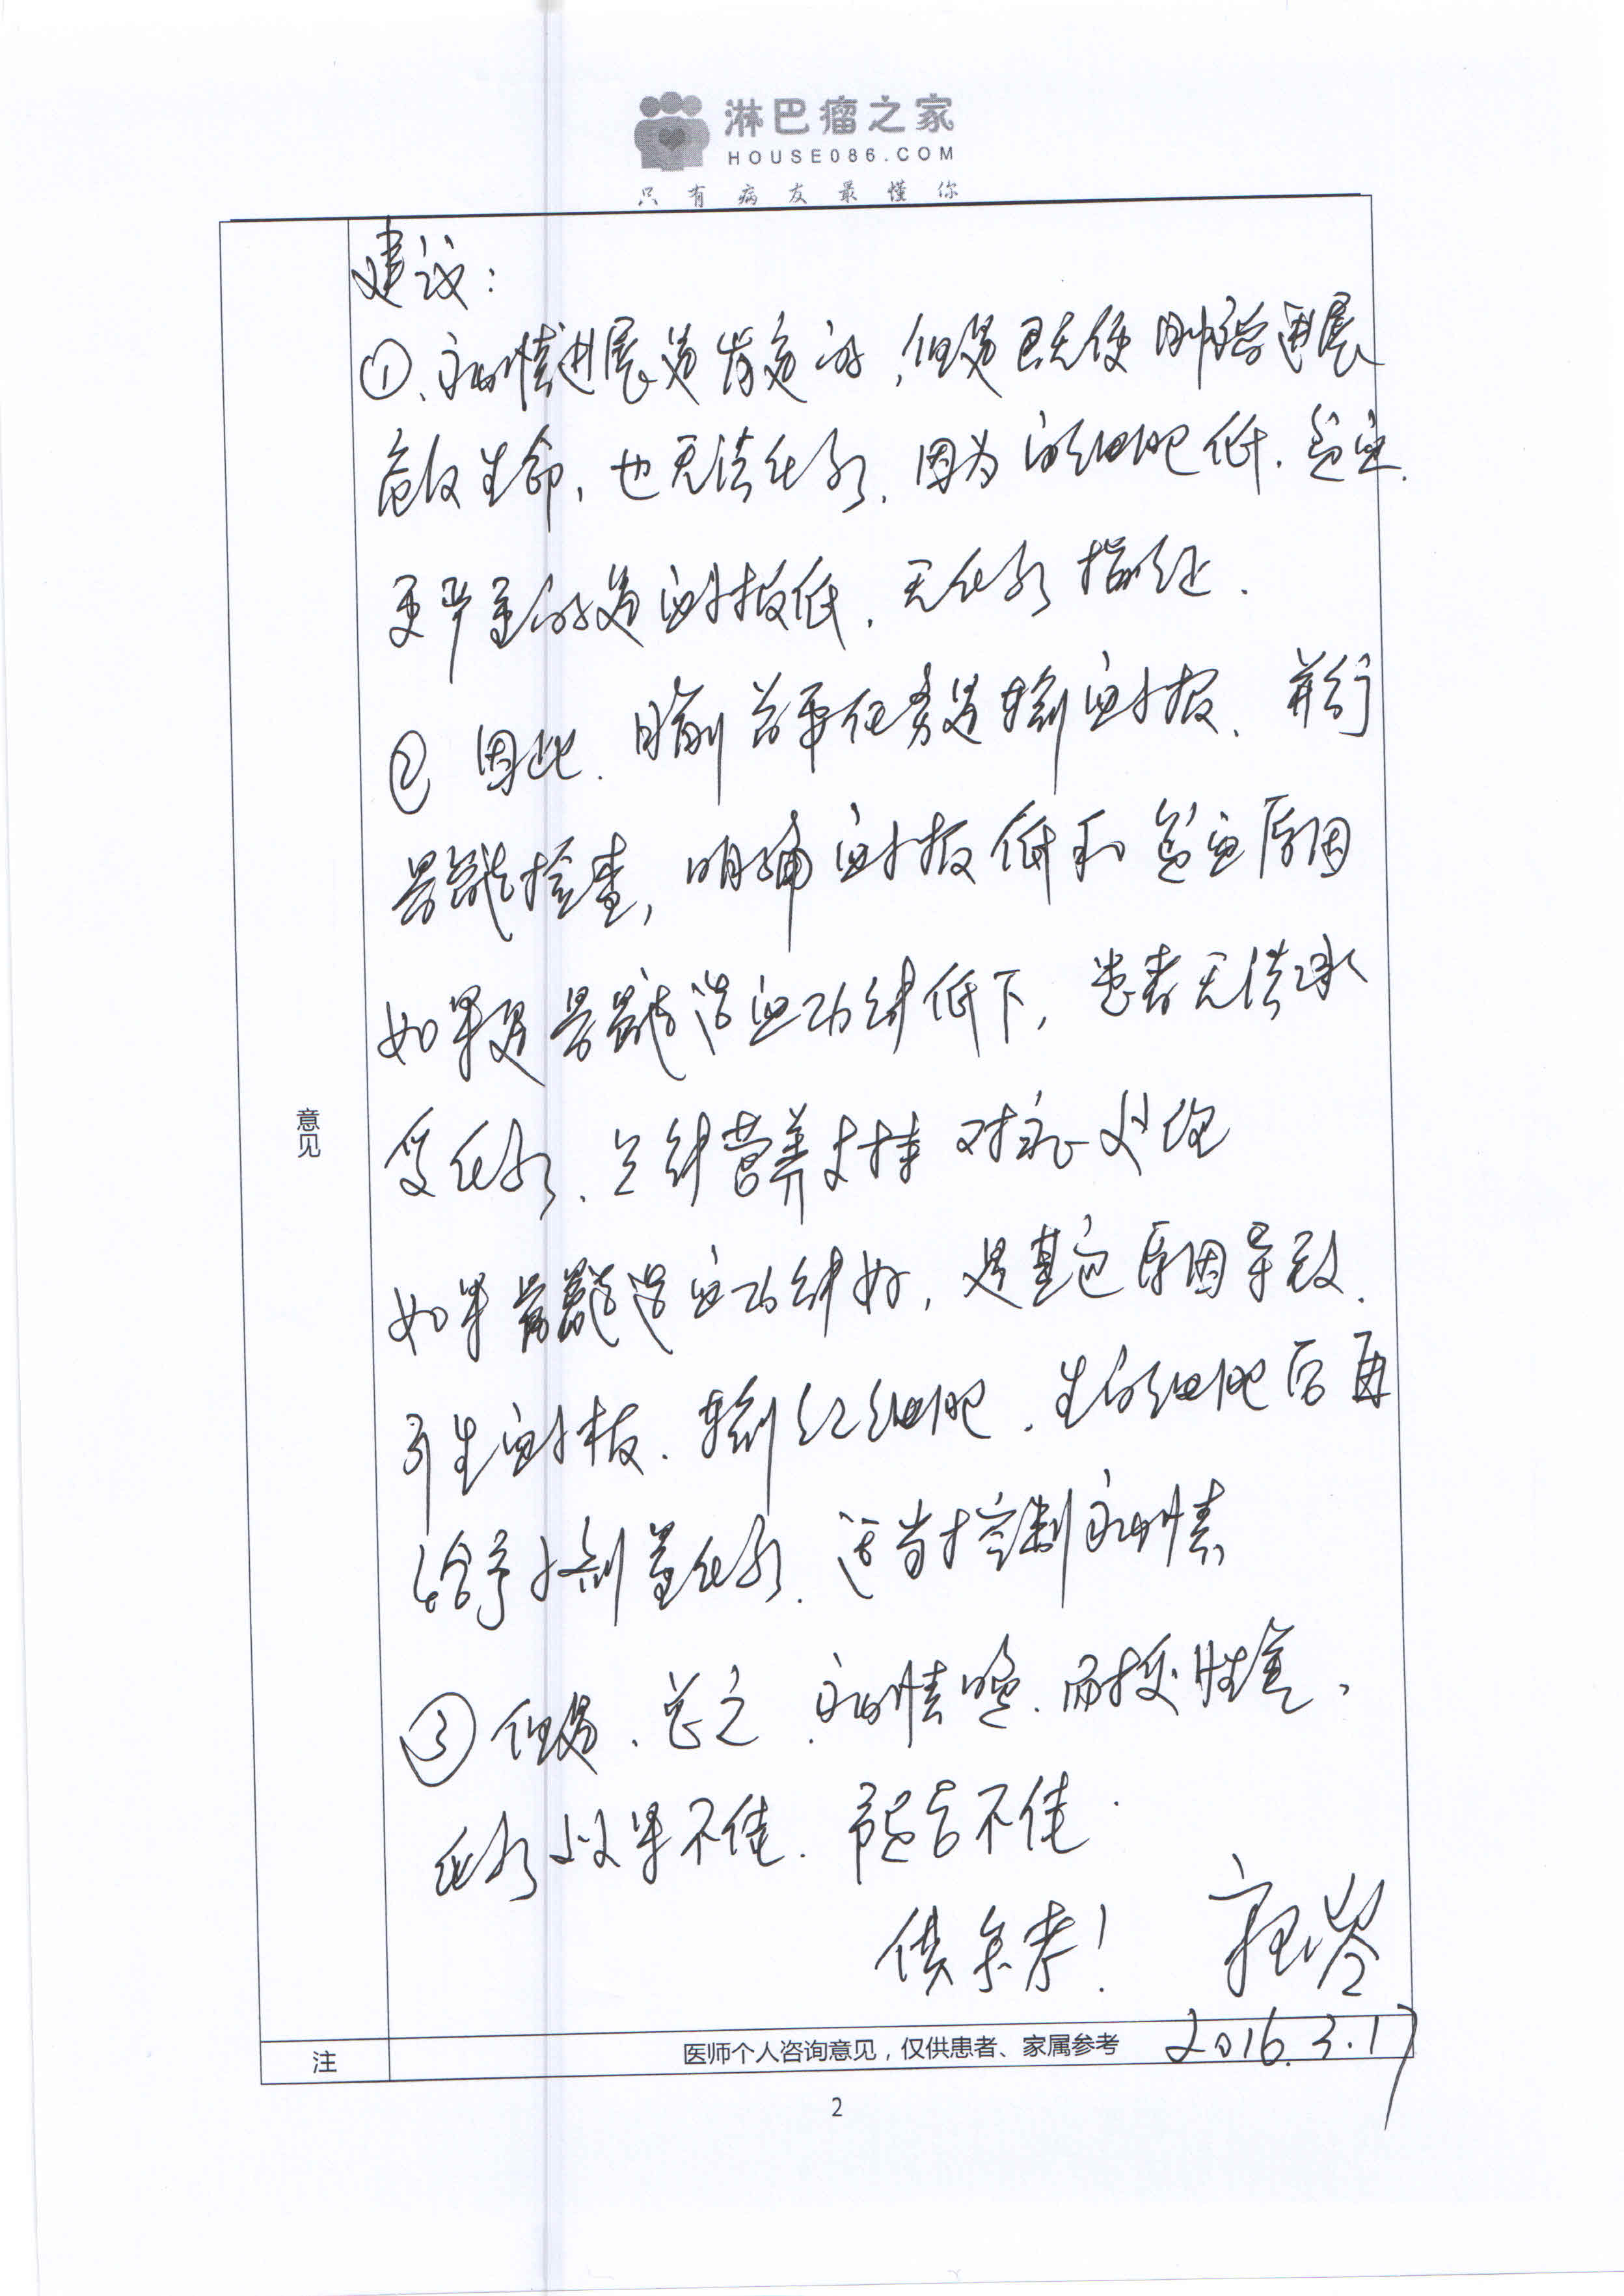 淋巴瘤之家
HOUSE086.COM
只有病友最懂你
建议：
①、病情进展是肯定的，但是即使肿瘤进展
危及生命，也无法化疗，因为白细胞低、贫血、
更严重的是血小板低，无化疗指征．
② 因此、目前首要任务是输血小板、并行
骨髓检查，明确血小板低和贫血原因
如果是骨髓造血功能低下，患者无法承
受化疗、只能营养支持 对症处理
如果骨髓造血功能好，是其它原因导致．
升生血小板、输红细胞、生白细胞后再
给予小剂量化疗、适当控制病情
③ 但是、总之、病情晚、耐受性差，
化疗效果不佳．预后不佳．
供参考！
2016.3.17
意见
注
医师个人咨询意见，仅供患者、家属参考
2